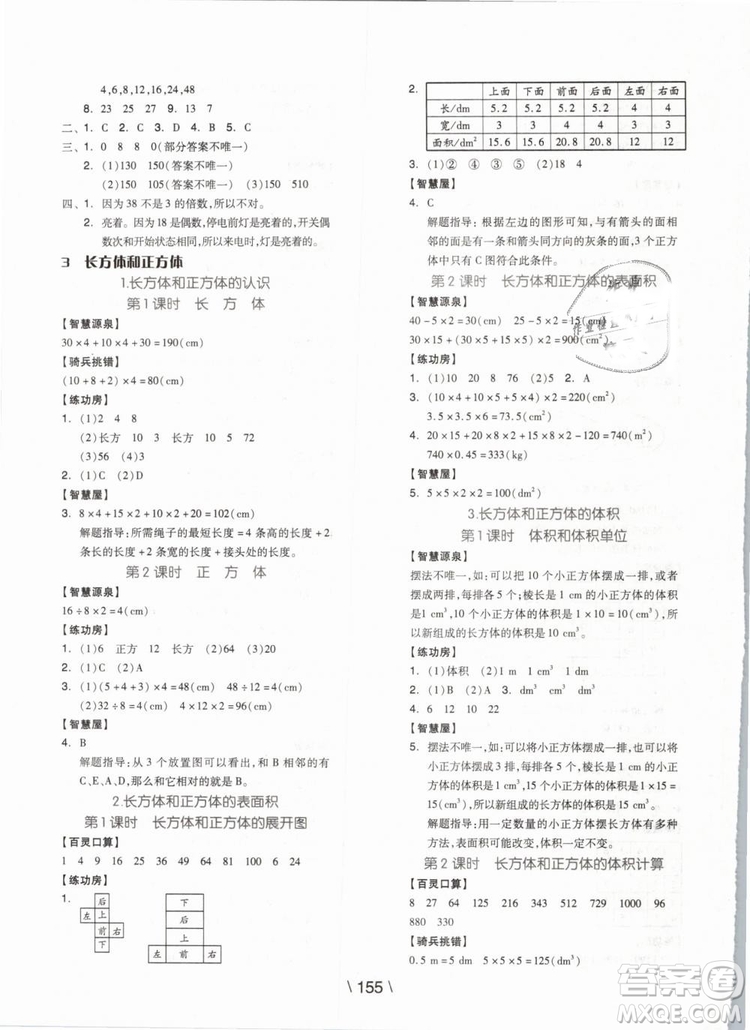 4,6,8,12,16,24,48
8. 23 25 27 9 13 7
二、1. C 2. C 3. D 4. B 5. C
三、1. 8 0 90(部分答案不唯一)
2. (1)130 150(答案不唯一)
(2)105 150(答案不唯一) (3)150 510
四、1. 因为 38 不是 3 的倍数，所以不对。
2. 亮着。因为 18 是偶数，停电前灯是亮着的，开关偶
数次和开始状态相同，所以来电时，灯是亮着的。
3 长方体和正方体
1.长方体和正方体的认识
第1课时 长 方 体
【智慧源泉】
30×4+10×4+30=190(cm)
【骑兵挑错】
(10+8+2)×4=80(cm)
【练功房】
1. (1)2 4 8
(2)长方 10 3 长方 5 10 72
(3)56 (4)3
2. (1)C (2)D (3)A
【智慧屋】
3. 8×4+15×2+10×2+20=102(cm)
解题指导：所需绳子的最短长度=4 条高的长度+
2 条长的长度+2 条宽的长度+接头处的长度。
第2课时 正 方 体
【智慧源泉】
16÷8×2=4(cm)
【练功房】
1. (1)6 正方 12 长方 (2)64 (3)2
2. (1)C (2)A
3. (1)(5+4+3)×4=48(cm) 48÷12=4(cm)
(2)32÷8=4(cm) 4×12×2=96(cm)
【智慧屋】
4. B
解题指导：从 3 个放置图可以看出，和 B 相邻的有
C、E、A、D，那么和它相对的就是 B。
2.长方体和正方体的表面积
第1课时 长方体和正方体的展开图
【百灵口算】
1 4 9 16 25 36 49 64 81 100
【练功房】
1.
后
左 上
前 右
下
后
上
下
左 前 右
2.
上面 下面 前面 后面 左面 右面
长/dm 5.2 5.2 5.2 5.2 4 4
宽/dm 3 3 4 4 3 3
面积/dm² 15.6 15.6 20.8 20.8 12 12
3. (1)② ④ ③ ⑤ (2)18 4
【智慧屋】
4. C
解题指导：根据左边的图形可知，与有箭头的面相
邻的面是和箭头同方向的灰条的面，3 个正方
体中只有 C 图符合此条件。
第2课时 长方体和正方体的表面积
【智慧屋】
40-5×2=30(cm) 25-5×2=15(cm)
30×15+(30×5+15×5)×2=900(cm²)
【练功房】
1. 10 20 8 76 5 2. A
3. (10×4+10×5+5×4)×2=220(cm²)
3.5×3.5×6=73.5(cm²)
4. 20×15+(20×8+15×8)×2-120=740(m²)
740×0.45=333(kg)
【智慧屋】
5. 5×5×2×2=100(dm²)
3.长方体和正方体的体积
第1课时 体积和体积单位
【智慧源泉】
摆法不唯一，如：可以把 10 个小正方体摆成一排，或者
摆成两排，每排 5 个；棱长是 1 cm 的小正方体的体积
是1 cm³，10 个小正方体的体积是 1×10=10(cm³)，所
以新组成的长方体的体积是 10 cm³。
【练功房】
1. (1)体积 (2)1 m 1 cm³ 1 dm
2. (1)B (2)A 3. dm³ cm³ m³
4. 6 12 10 22
【智慧屋】
5. 摆法不唯一，如：可以将小正方体摆成一排，也可以
摆成 3 排，每排 5 个；棱长是 1 cm 的小正方体的体
积是 1 cm³，15 个小正方体的体积是 1×15=
15(cm³)，所以新组成的长方体的体积是 15 cm³。
解题指导：用一定数量的小正方体摆长方体有多种
方法，表面积可能改变，体积一定不变。
第2课时 长方体和正方体的体积计算
【百灵口算】
8 27 64 125 216 512 1000 96
880 330
【骑兵挑错】
0.5 m=5 dm 5×5×5=125(dm³)
\ 155 \
答案卷
MXQE.COM